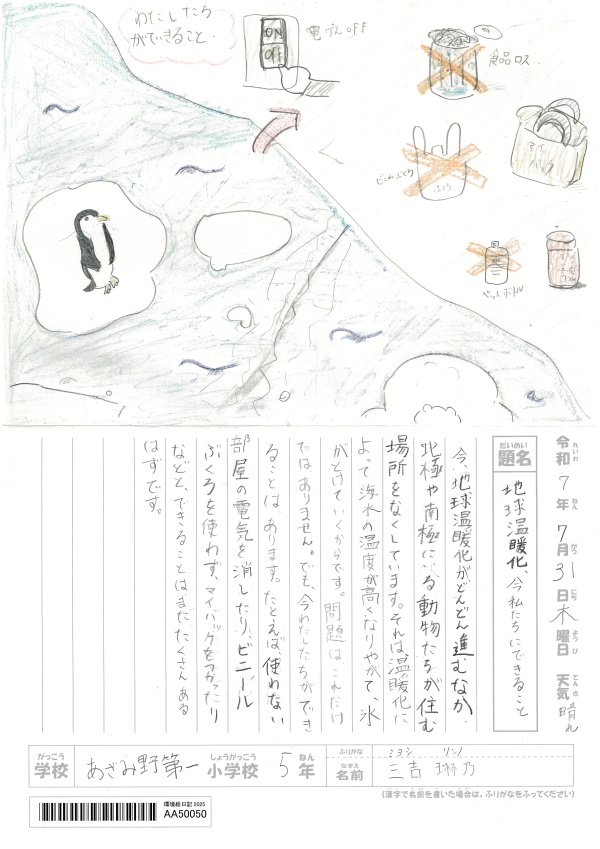 わたしたち
ができること
ON
OFF
電げんOFF
食品ロス
ビニールぶくろ
ふくろ
マイ
バック
ペットボトル
令和7年7月31日木曜日 天気 晴れ
れいわ ねん がつ にち ようび てんき
だいめい
題名
地球温暖化、今私たちにできること
今、地球温暖化がどんどん進むなか、
北極や南極にいる動物たちが住む
場所をなくしています。それは温暖化に
よって海水の温度が高くなりやがて、氷
がとけていくからです。問題は、これだけ
ではありません。でも、今わたしたちができ
ることは、あります。たとえば、使わない
部屋の電気を消したり、ビニール
ぶくろを使わず、マイバックをつかったり
などと、できることはまだたくさんある
はずです。
がっこう
学校
あざみ野第一
しょうがっこう
小学校
5
ねん
年
ふりがな
ミヨシ リンノ
なまえ
名前
三吉 琳乃
(漢字で名前を書いた場合は、ふりがなをふってください)
環境絵日記 2025
AA50050